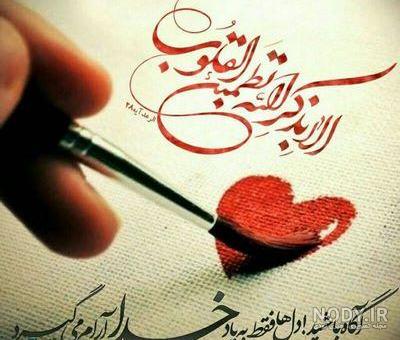 الا بذکر الله تطمئن القلوب
الرعد آیه ۲۸
آگاه باشید! دل ها فقط به یاد خدا آرام می گیرد
NODY.IR